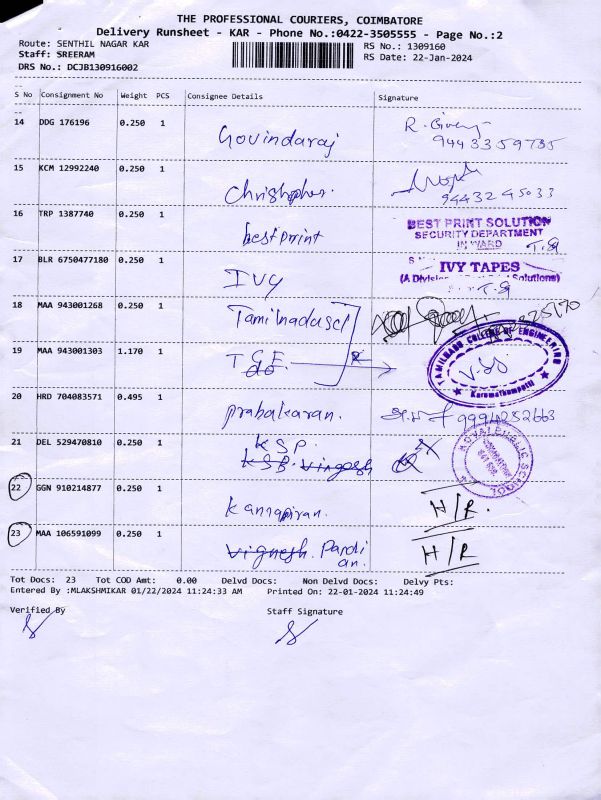 THE PROFESSIONAL COURIERS, COIMBATORE
Delivery Runsheet - KAR - Phone No.:0422-3505555 - Page No.:2
Route: SENTHIL NAGAR KAR
RS No.: 1309160
Staff: SREERAM
RS Date: 22-Jan-2024
DRS No.: DCJB130916002
S No Consignment No Weight PCS Consignee Details Signature
14 DDG 176196 0.250 1 Govindaraj
9443359735
15 KCM 12992240 0.250 1 Christopher.
9443245033
16 TRP 1387740 0.250 1 best print
BEST PRINT SOLUTION
SECURITY DEPARTMENT
INWARD
17 BLR 6750477180 0.250 1 IVY
IVY TAPES
18 MAA 943001268 0.250 1
19 MAA 943001303 1.170 1
TAMILNADU COLLEGE OF ENGINEERING
Karumathampatti
20 HRD 704083571 0.495 1 prabakaran. 9994252663
21 DEL 529470810 0.250 1 KSP.
KSP. Vingesh
PUBLIC SCHOOL
22 GGN 910214877 0.250 1 Kannapiran. H/R.
23 MAA 106591099 0.250 1 Vignesh. Pandi
an. H/R
Tot Docs: 23 Tot COD Amt: 0.00 Delvd Docs: Non Delvd Docs: Delvy Pts:
Entered By :MLAKSHMIKAR 01/22/2024 11:24:33 AM Printed On: 22-01-2024 11:24:49
Verified By Staff Signature